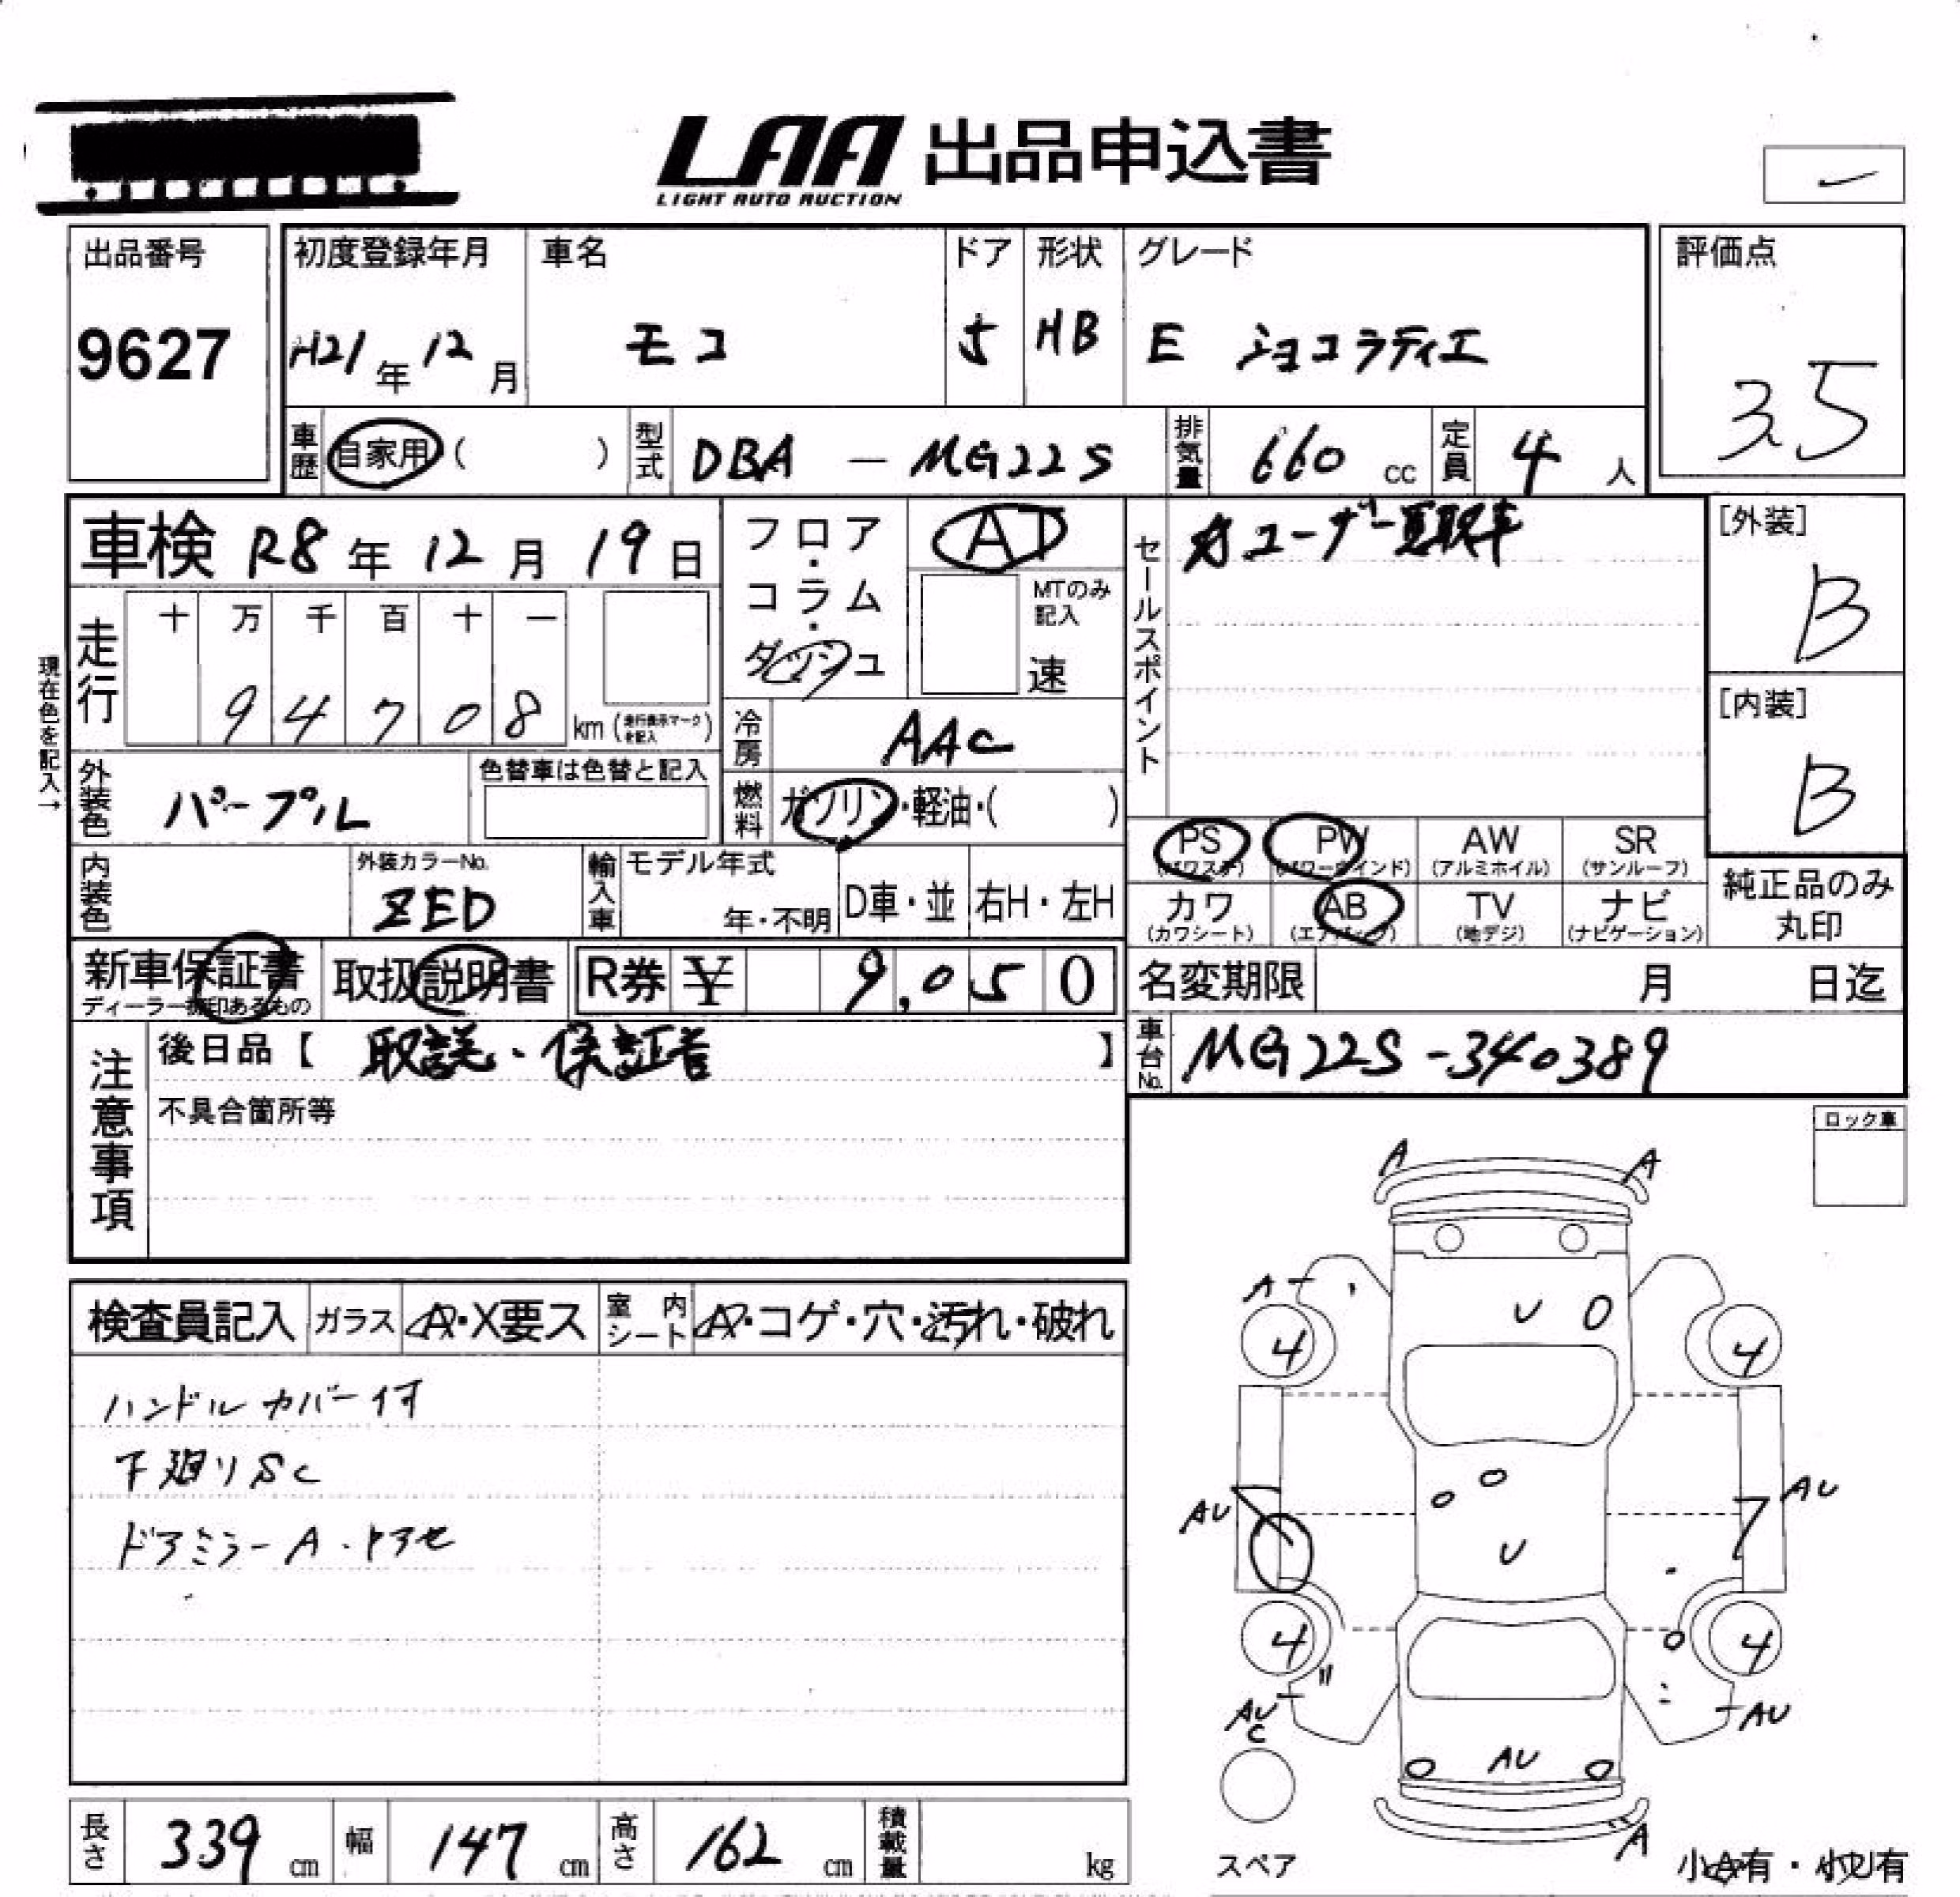 LAA 出品申込書
LIGHT AUTO AUCTION
出品番号
9627
初度登録年月
H21年12月
車名
モコ
ドア
5
形状
HB
グレード
E ショコラティエ
評価点
3.5
車歴
自家用( )
型式
DBA - MG22S
排気量
660 cc
定員
4人
車検 R8年12月19日
走行
十 万 千 百 十 一
9 4 7 0 8
km(走行表示マークを記入)
現在色を記入→
フロア・コラム・ダッシュ
AT
MTのみ記入
速
冷房
AAC
燃料
ガソリン・軽油・( )
外装色
パープル
色替車は色替と記入
内装色
外装カラーNo.
ZED
輸入車
モデル年式
年・不明
D車・並
右H・左H
セールスポイント
ユーザー買取車
[外装]
B
[内装]
B
PS
(パワステ)
PW
(パワーウインド)
AW
(アルミホイル)
SR
(サンルーフ)
カワ
(カワシート)
AB
(エアバッグ)
TV
(地デジ)
ナビ
(ナビゲーション)
純正品のみ
丸印
新車保証書
ディーラー捺印あるもの
取扱説明書
R券 ¥ 9,050
名変期限 月 日迄
車台No.
MG22S-340389
注意事項
後日品【 取説・保証書 】
不具合箇所等
ロック車
検査員記入
ガラス
A・X要ス
室内シート
A・コゲ・穴・汚れ・破れ
ハンドルカバー付
下廻りSC
ドアミラーA・トアセ
A
A
A
U
4
4
AU
AU
U
4
4
AU
C
AU
AU
A
スペア
小A有・小U有
長さ
339 cm
幅
147 cm
高さ
162 cm
積載量
kg